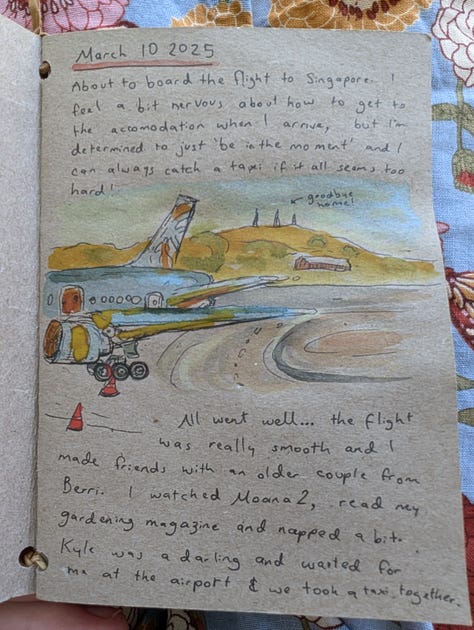 March 10 2025
About to board the flight to Singapore. I
feel a bit nervous about how to get to
the accomodation when I arrive, but I'm
determined to just 'be in the moment' and I
can always catch a taxi if it all seems too
hard!
goodbye
home!
All went well... the flight
was really smooth and I
made friends with an older couple from
Berri. I watched Moana 2, read my
gardening magazine and napped a bit.
Kyle was a darling and waited for
me at the airport & we took a taxi together.